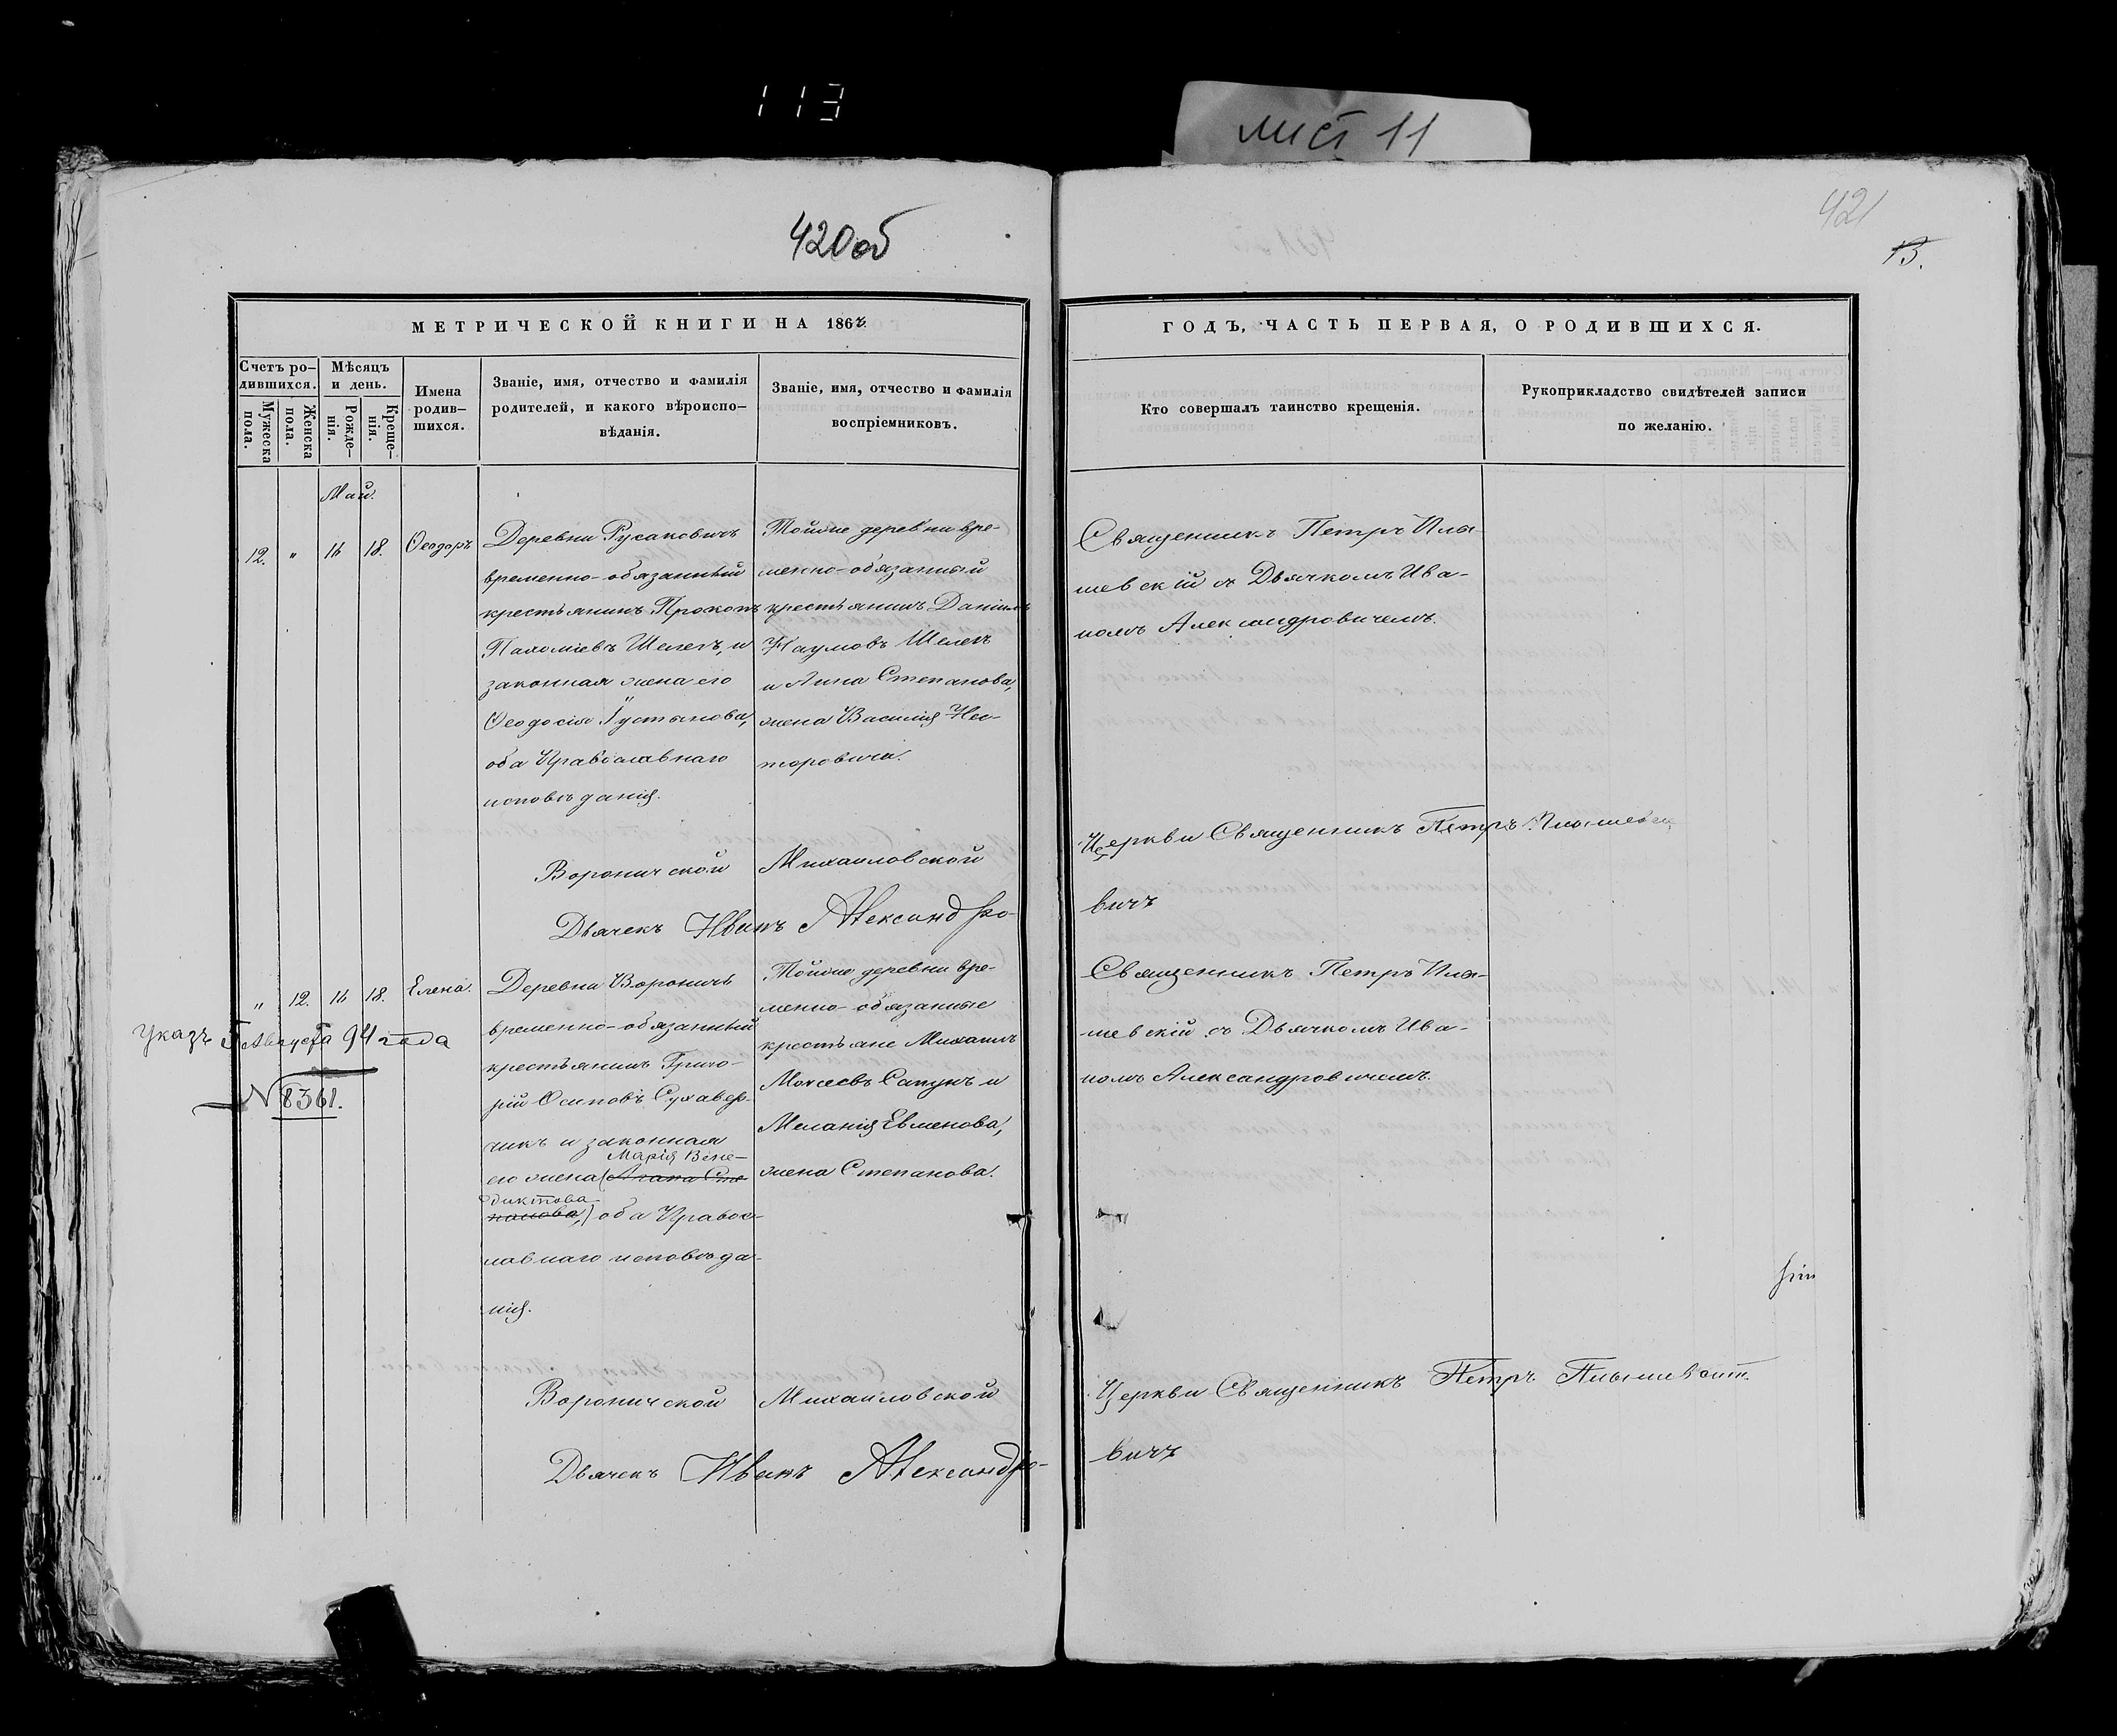 113
лист 11
420об
421
13.
МЕТРИЧЕСКОЙ КНИГИ НА 186
ГОДЪ, ЧАСТЬ ПЕРВАЯ, О РОДИВШИХСЯ.
Счетъ ро-
дившихся.
Мужеска
пола.
Женска
пола.
Мѣсяцъ
и день.
Рожде-
нія.
Креще-
нія.
Имена
родив-
шихся.
Званіе, имя, отчество и фамилія
родителей, и какого вѣроиспо-
вѣданія.
Званіе, имя, отчество и фамилія
воспріемниковъ.
Кто совершалъ таинство крещенія.
Рукоприкладство свидѣтелей записи
по желанію.
Май.
12. " 16 18. Ѳеодоръ
Деревни Русаковичъ
временно-обязанный
крестьянинъ Прокопъ
Пахоміевъ Шелегъ, и
законная жена его
Ѳеодосія Іустинова,
оба Православнаго
исповѣданія.
Тойже деревни вре-
менно-обязанный
крестьянинъ Даніилъ
Наумовъ Шелегъ
и Анна Степанова,
жена Василія Нес-
торовича.
Священникъ Петръ Илы-
шевскій съ Дьячкомъ Ива-
номъ Александровичемъ.
Вороничской Михаиловской Церкви Священникъ Петръ
Дьячекъ Иванъ Александро-
вичъ
" 12. 16 18. Елена.
Указъ 5 Августа 94 года
№ 8361.
Деревни Вороничъ
временно-обязанный
крестьянинъ Григо-
рій Осиповъ Сухавер-
чикъ и законная
Марія Вене-
его жена (Агата Сте-
диктова
панова,) оба Правос-
лавнаго исповѣда-
нія.
Тойже деревни вре-
менно-обязанные
крестьяне Михаилъ
Моисеевъ Сапунъ и
Меланія Евменова,
жена Степанова.
Священникъ Петръ Илы-
шевскій съ Дьячкомъ Ива-
номъ Александровичемъ.
Вороничской Михаиловской Церкви Священникъ Петръ
Дьячекъ Иванъ Александро-
вичъ